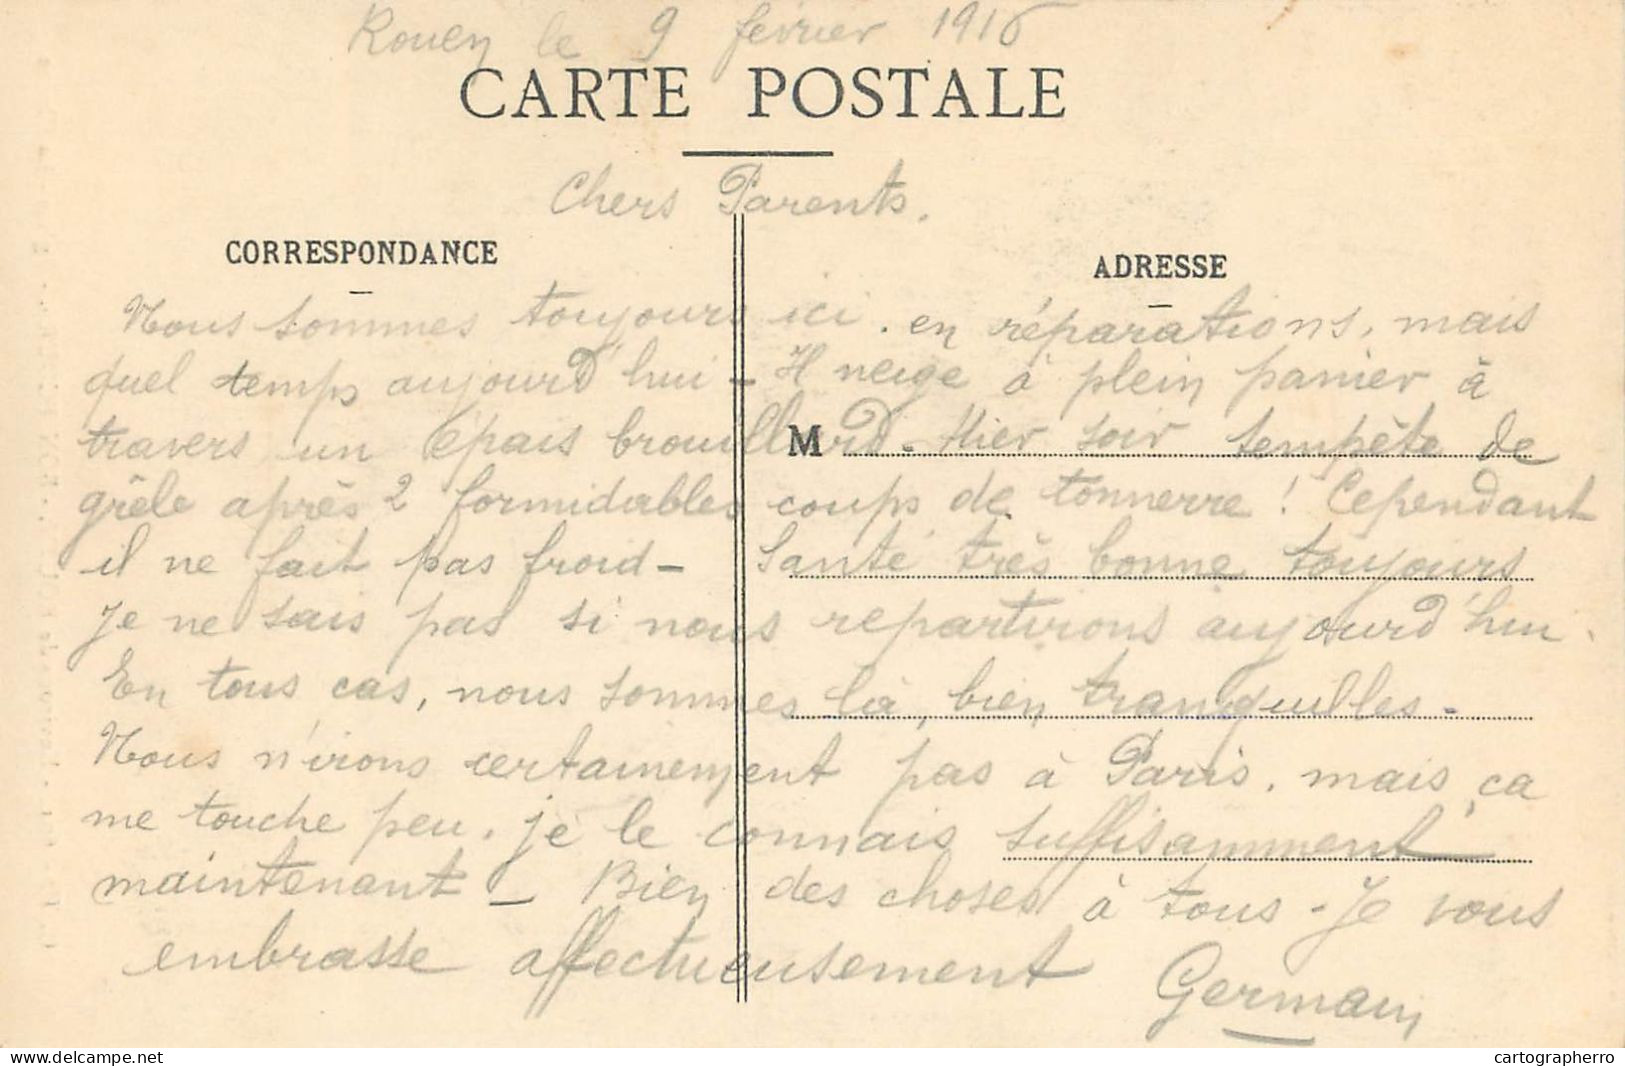 Rouen le 9 février 1916
CARTE POSTALE
Chers Parents.
CORRESPONDANCE
ADRESSE
Nous sommes toujours ici. en réparations, mais
quel temps aujourd'hui - Il neige à plein panier à
travers un épais brouillard - Hier soir tempête de
M
grêle après 2 formidables coups de tonnerre ! Cependant
il ne fait pas froid - Santé très bonne toujours
Je ne sais pas si nous repartirons aujourd'hui.
En tous cas, nous sommes là, bien tranquilles -
Nous n'irons certainement pas à Paris, mais ça
me touche peu. je le connais suffisamment
maintenant - Bien des choses à tous - Je vous
embrasse affectueusement
Germain
cartographerro